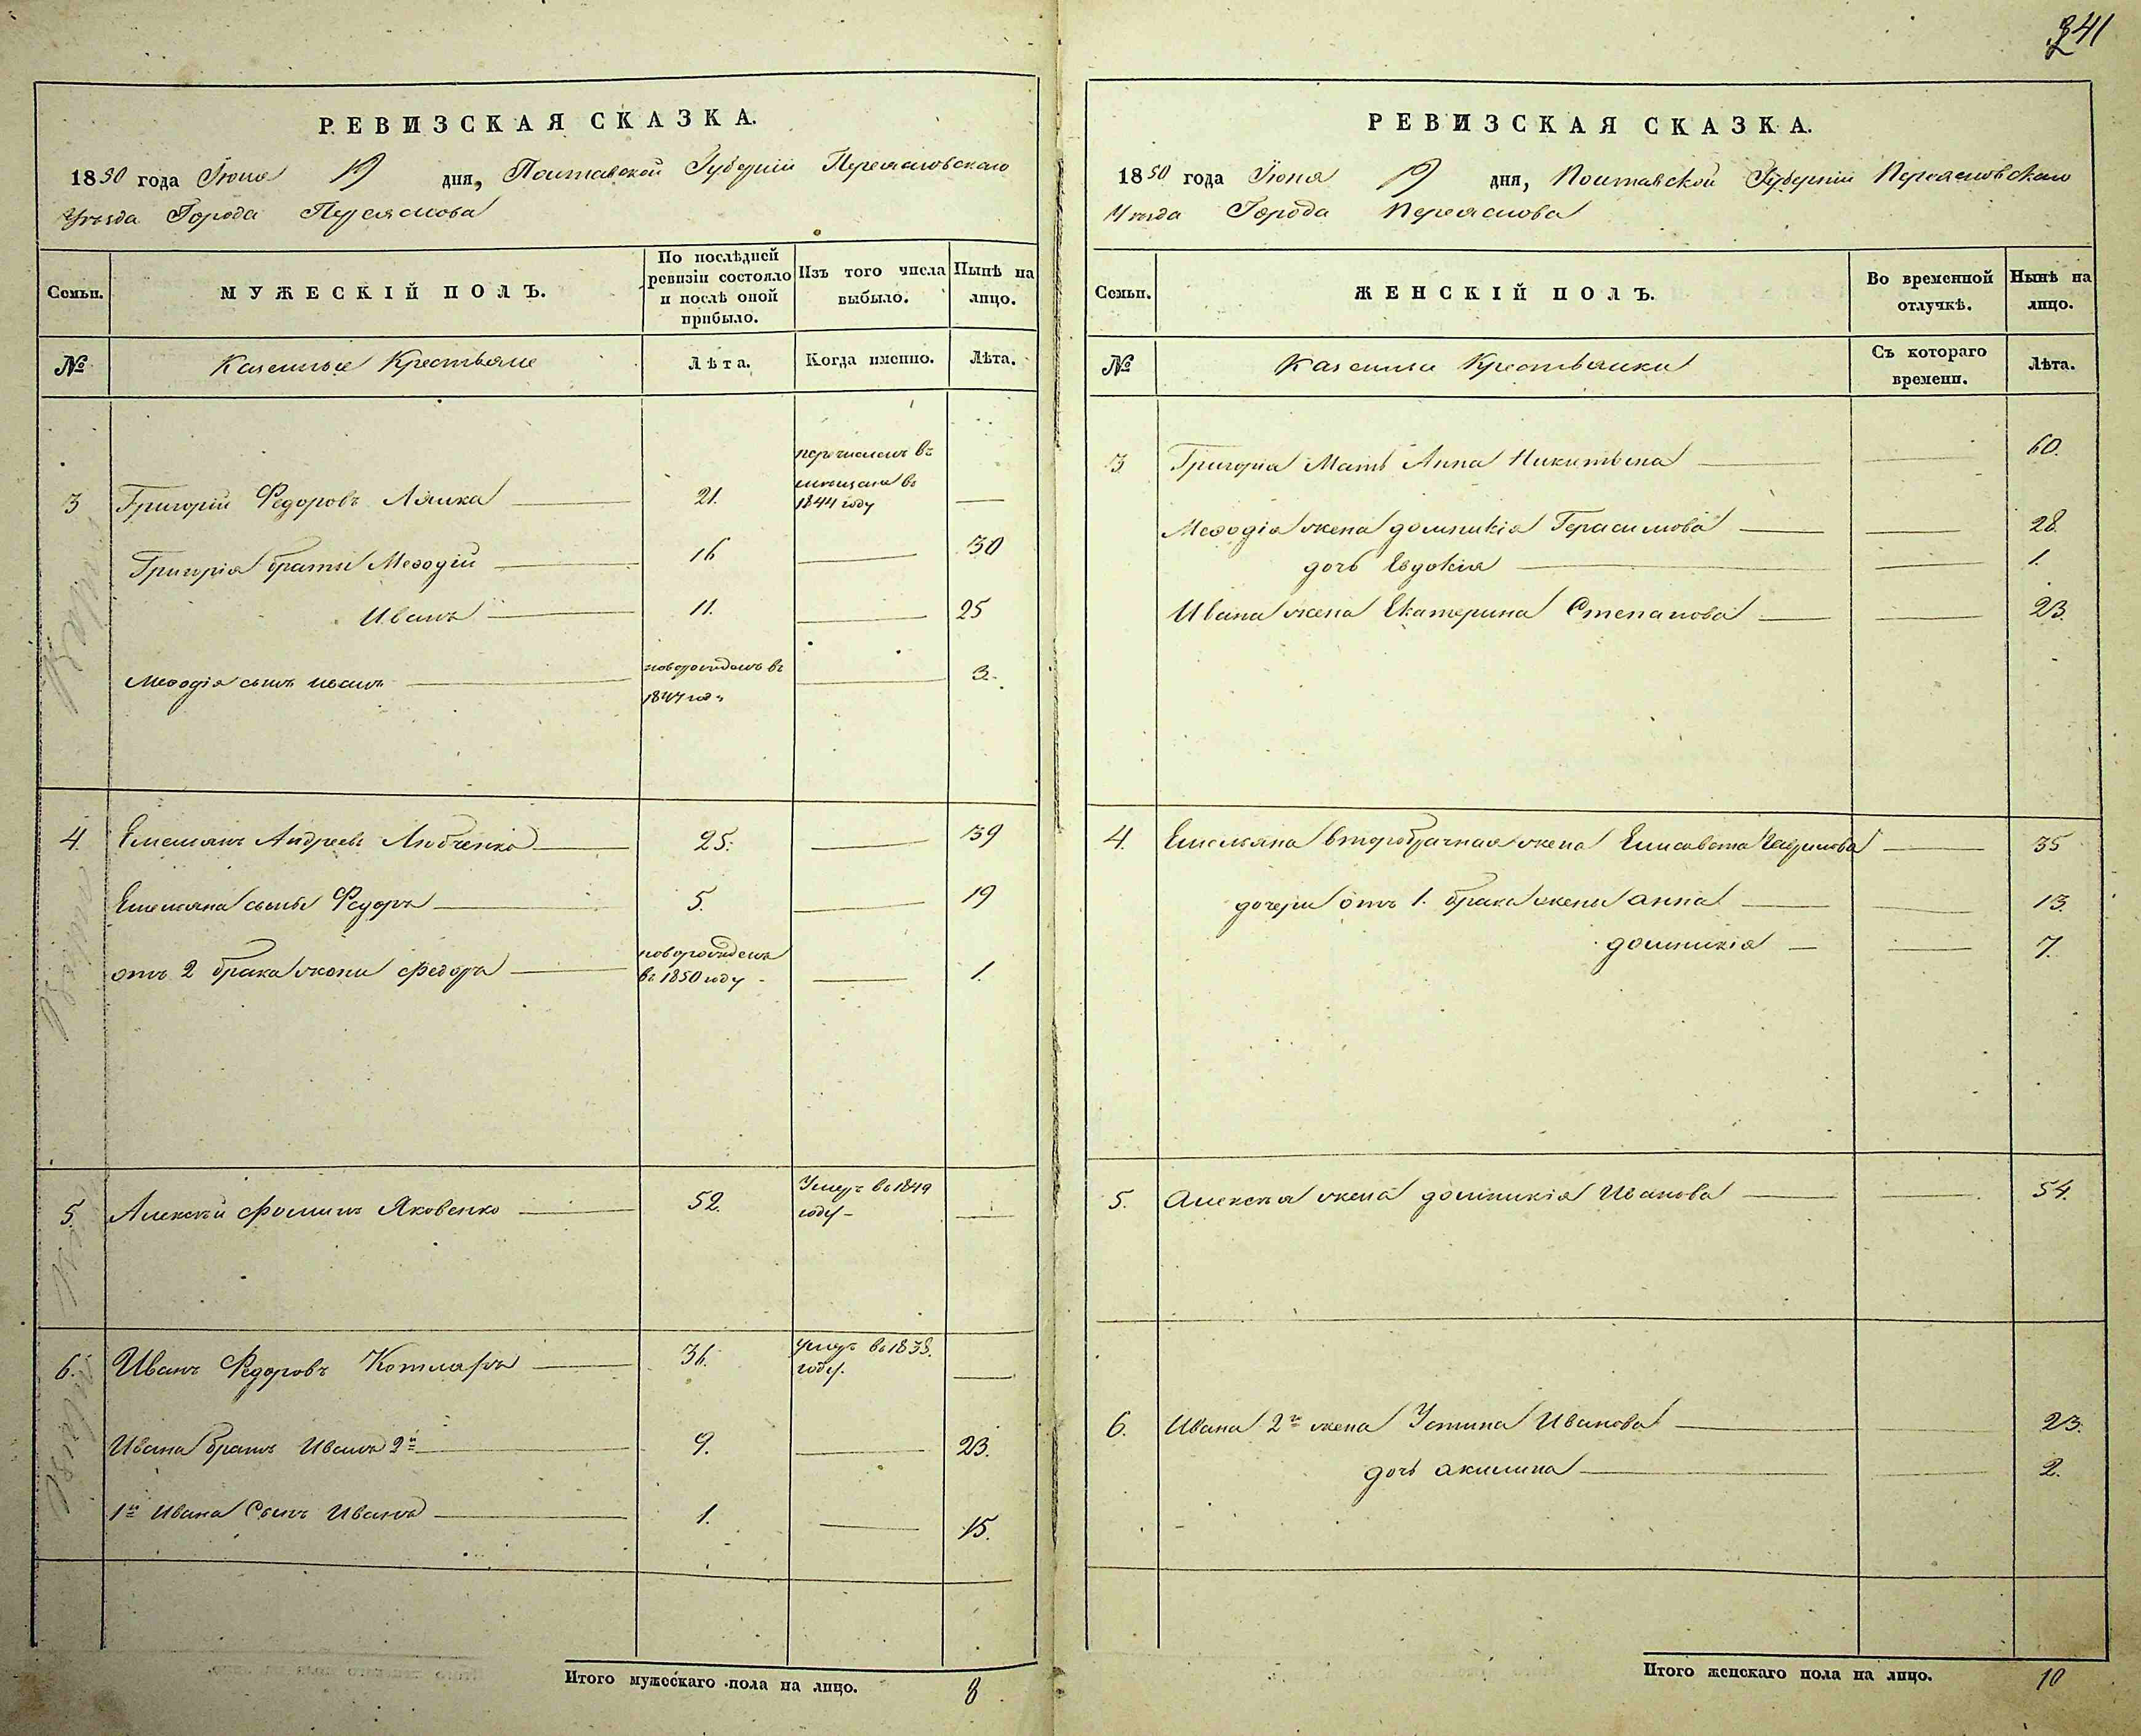 341
РЕВИЗСКАЯ СКАЗКА.
1850 года Іюня 19 дня, Полтавской Губерніи Переяславскаго
Уезда Города Переяслова
Семьи.
МУЖЕСКІЙ ПОЛЪ.
По послѣдней ревизіи состояло и послѣ оной прибыло.
Изъ того числа выбыло.
Нынѣ на лицо.
№
Казенные Крестьяне
Лѣта.
Когда именно.
Лѣта.
3 Григорій Федоровъ Ляшка 21. перечисленъ въ мещане въ 1844 году
Григорія братья Меѳодій 16 30
Иванъ 11. 25
Меѳодія сынъ иванъ новорожденъ въ 1847 году 3.
4. Емельянъ Андреевъ Любченко 25. 39
Емельяна сыны Федоръ 5. 19
отъ 2 брака жены Федоръ новорожденъ въ 1850 году 1.
5. Алексѣй Фоминъ Яковенко 52. Умеръ въ 1849 году
6. Иванъ Федоровъ Котляръ 36. умеръ въ 1838. году.
Ивана братъ Иванъ 2й 9. 23.
1го Ивана Сынъ Иванъ 1. 15.
Итого мужескаго пола на лицо. 8
РЕВИЗСКАЯ СКАЗКА.
1850 года Іюня 19 дня, Полтавской Губерніи Переясловскаго
Уезда Города Переяслова
Семьи.
ЖЕНСКІЙ ПОЛЪ.
Во временной отлучкѣ.
Нынѣ на лицо.
№
Казенныи Крестьянки
Съ котораго времени.
Лѣта.
3 Григорія Мать Анна Никитьена 60.
Меѳодія жена домникія Герасимова 28.
дочь Евдокія 1.
Ивана жена Екатерина Степанова 23.
4. Емельяна второбрачная жена Елисавета Гаврилова 35
дочери отъ 1. брака жены анна 13.
домникія 7.
5. Алексѣя жена домникія Иванова 54.
6. Ивана 2го жена Устина Иванова 23.
дочь акилина 2.
Итого женскаго пола на лицо. 10